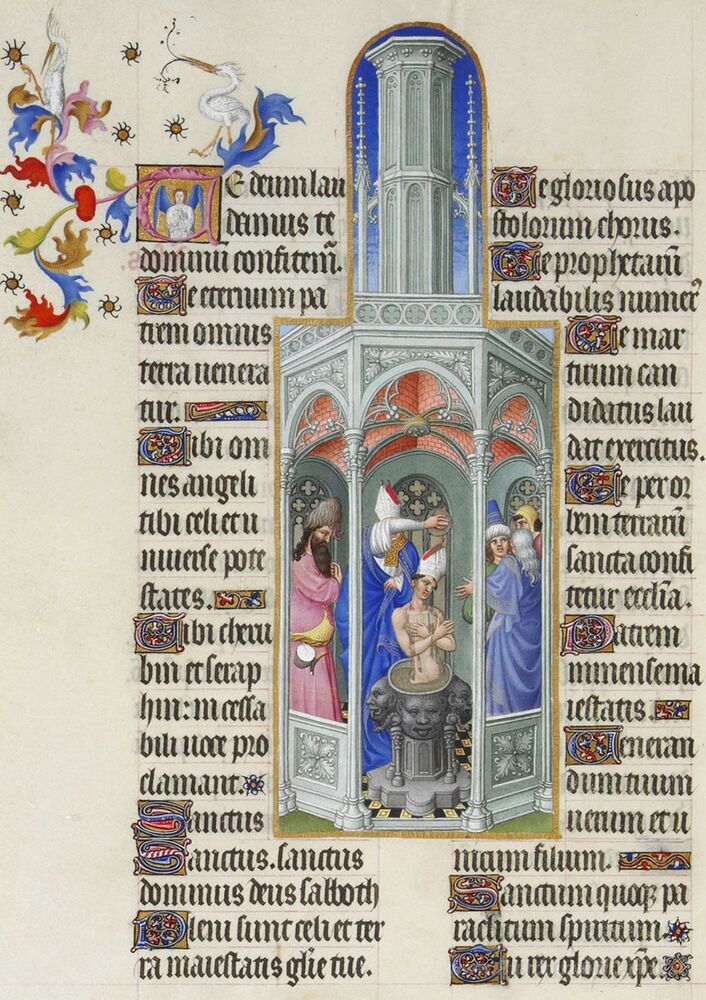 TE deum lau
damus te
dominū confitem̄.
Te eternum pa
trem omnis
terra uenera
tur.
Tibi om
nes angeli
tibi celi et u
niuerse pote
states.
Tibi cheru
bin et serap
hin: in cessa
bili uoce pro
clamant.
Sanctus
Sanctus. sanctus
dominus deus sabboth
Pleni sunt celi et ter
ra maiestatis gl̄ie tue.
Te gloriosus apo
stolorum chorus.
Te prophetarū
laudabilis numerꝰ
Te mar
tirum can
didatus lau
dat exercitus.
Te per or
bem terrarū
sancta confi
tetur eccl̄ia.
Patrem
immense ma
iestatis.
Veneran
dum tuum
uerum et u
nicum filium.
Sanctum quoqꝫ pa
raclitum spiritum.
Tu rex glorie xp̄e.